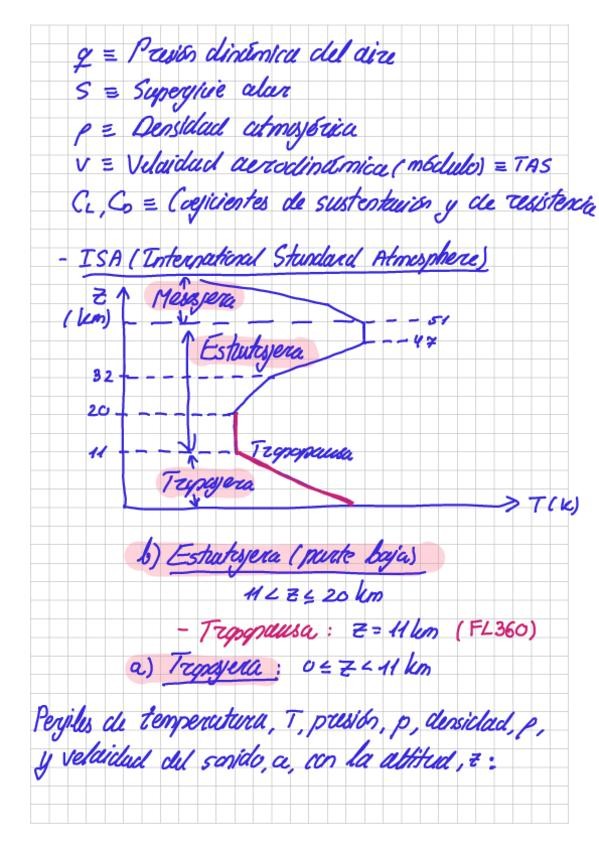 q ≡ Presión dinámica del aire
S ≡ Superficie alar
ρ ≡ Densidad atmosférica
v ≡ Velocidad aerodinámica (módulo) ≡ TAS
CL, CD ≡ Coeficientes de sustentación y de resistencia
- ISA (International Standard Atmosphere)
Z (km)
Mesosfera
51
47
Estratosfera
32
20
11
Tropopausa
Troposfera
T(K)
b) Estratosfera (parte baja)
11 < z ≤ 20 km
- Tropopausa: z = 11 km (FL360)
a) Troposfera: 0 ≤ z < 11 km
Perfiles de temperatura, T, presión, p, densidad, ρ,
y velocidad del sonido, a, con la altitud, z: